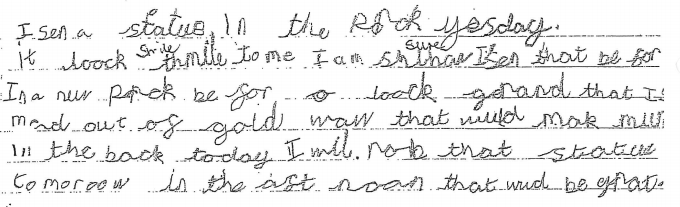 I sen a statue, In the Pock yesday.
it loock smile thmile to me I am sure shhaw I sen that be for
In a nuw Pock be for o lock gerand that Is
mead out of gold waw that wuld mak miu
In the back today I will. rob that statue
tomoroow in the ast noan that wud be grat.